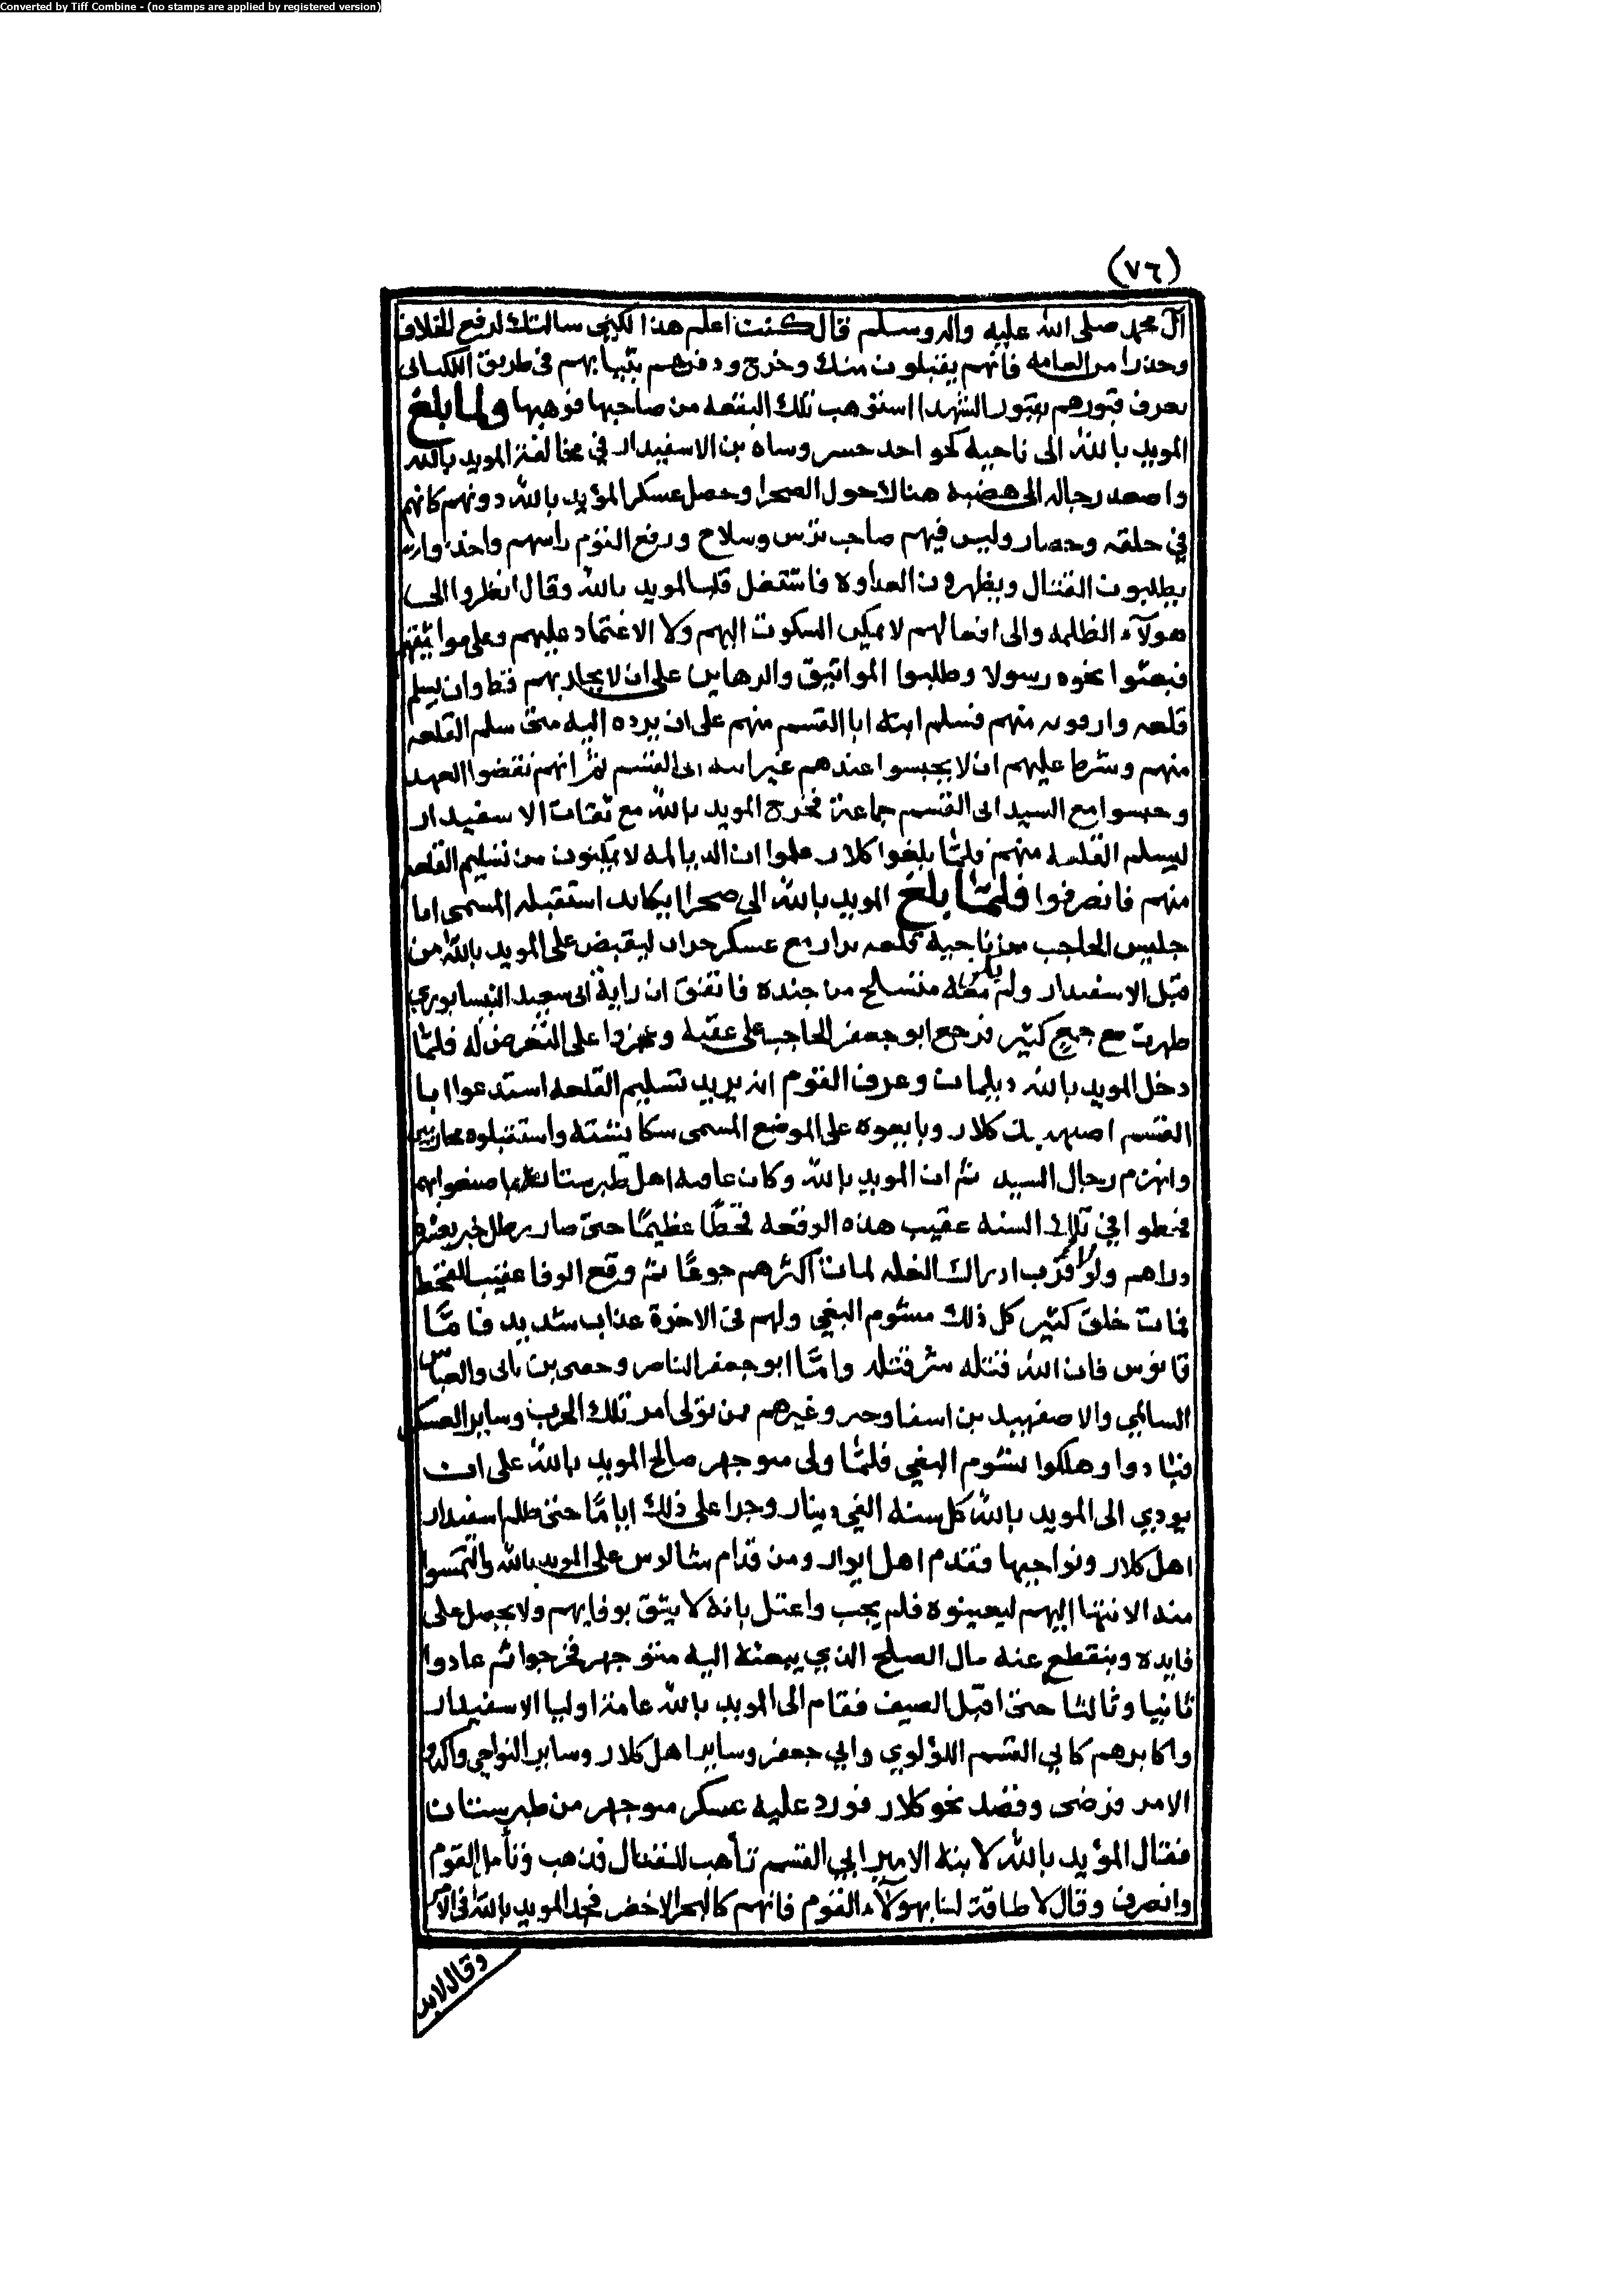 Converted by Tiff Combine - (no stamps are applied by registered version)
(٧٦)
آل محمد صلى الله عليه واله وسلم قال كنت اعلم هذا لكني سالتك لدفع الخلاف
وحذرا من العامه فانهم يقبلون منك وخرج ودفنهم بثيابهم في طريق
يعرف قبورهم بقبور الشهدا استوهب تلك البقعه من صاحبها فوهبها ولما بلغ
المويد بالله الى ناحية نحو احد وساه بن الاسفيدار في مخالفة المويد بالله
واصعد رجاله الى هضبة هنالك حول الصحرا وحصل عسكر المؤيد بالله دونهم كانهم
في حلقه وحصار وليس فيهم صاحب ترس وسلاح ورفع القوم راسهم واخذوا
يطلبون القتال ويظهرون العداوه فاشتغل قلب المويد بالله وقال انظروا الى
هولآء الظلمه والى افعالهم لا يمكن السكون اليهم ولا الاعتماد عليهم وعلى مواثيقهم
فبعثوا نحوه رسولا وطلبوا المواثيق والرهاين على ان لا يحاربهم قط وان يسلم
قلعه منهم فسلم ابنه ابا القسم منهم على ان يرده اليه متى سلم القلعه
منهم وشرط عليهم ان لا يحبسوا عندهم غير ابنه ابي القسم ثم انهم نقضوا العهد
وحبسوا مع السيد ابي القسم جماعة فخرج المويد بالله مع ثقات الاسفيدار
ليسلم القلعه منهم فلمّا بلغوا كلار علموا ان الديالمه لا يمكنون من تسليم القلعه
منهم فانصرفوا فلمّا بلغ المويد بالله الى صحرا استقبله المسمى اما
جليس الحاجب من ناحية قلعه مع عسكر جرار ليقبض على المويد بالله من
قبل الاسفيدار ولم يكن معه متسلح من جنده فاتفق ان راية ابي سعيد النيسابوري
ظهرت مع جمع كثير فرجع ابو جعفر الحاجب على عقبه وعجزوا على التعرض له فلمّا
دخل المويد بالله ديلمان وعرف القوم انه يريد تسليم القلعه استدعوا ابا
القسم كلار وبايعوه على الموضع المسمى واستقبلوه محاربين
وانهزم رجال السيد ثم ان المويد بالله وكان عامه اهل طبرستان صنعوا بهم
فحطوا في تلك السنه عقيب هذه الوقعه قحطًا عظيمًا حتى صار رطل خبز بعشره
دراهم ولولا قرب ادراك الغله لمات اكثرهم جوعًا ثم وقع الوفا عقيب القحط
فمات خلق كثير كل ذلك مشوم البغي ولهم في الاخرة عذاب شديد فامّا
قابوس فان الله قتله شر قتله وامّا ابو جعفر الناصر بن والعباس
السالمي والاصفهبيد بن وغيرهم ممن تولى امر تلك الحرب وساير العسكر
فبادوا وهلكوا بشوم البغي فلمّا ولى منوجهر صالح المويد بالله على ان
يودي الى المويد بالله كل سنه الفي دينار وجرا على ذلك ايامًا حتى ظلم اسفيدار
اهل كلار ونواحيها فقدم اهل ايوار ومن قدام شالوس على المويد بالله والتمسوا
منه الانتها اليهم ليعينوه فلم يجب واعتل بانه لا يثق بوفايهم ولا يحصل على
فايده وينقطع عنه مال الصلح الذي يبعثه اليه منوجهر فخرجوا ثم عادوا
ثانيا وثالثا حتى اقبل الصيف فقام الى المويد بالله عامة اوليا الاسفيدار
واكابرهم كابي القسم اللؤلوي وابي جعفر وساير اهل كلار وساير النواحي واكدوا
الامر فرضى وقصد نحو كلار فورد عليه عسكر منوجهر من طبرستان
فقال المؤيد بالله لابنه الامير ابي القسم تأهب للقتال فذهب وتأمل القوم
وانصرف وقال لا طاقة لنا بهولآء القوم فانهم كالبحر الاخضر فجد المويد بالله في الامر
وقال لابد